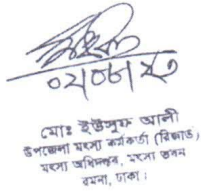 মোঃ ইউসুফ আলী
উপজেলা মৎস্য কর্মকর্তা (রিজার্ভ)
মৎস্য অধিদপ্তর, মৎস্য ভবন
রমনা, ঢাকা।